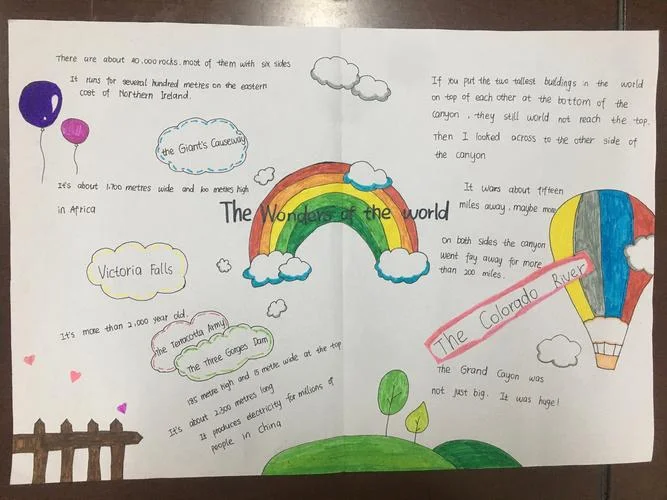 There are about 40,000 rocks. most of them with six sides
It runs for several hundred metres on the eastern
cost of Northern Ireland.
the Giant's Causeway
It's about 1.700 metres wide and 100 metres high
in Africa
Victoria Falls
It's more than 2,000 year old.
the Terracotta Army
The Three Gorges Dam
185 metre high and 15 metre wide at the top
It's about 2.300 metres long
It produces electricity for millions of
people in China
The Wonders of the world
If you put the two tallest buildings in the world
on top of each other at the bottom of the
canyon , they still world not reach the top.
Then I looked across to the other side of
the canyon
It wars about fifteen
miles away, maybe more
on both sides the canyon
went fay away for more
than 200 miles.
The Colorado River
The Grand Cayon was
not just big. It was huge!